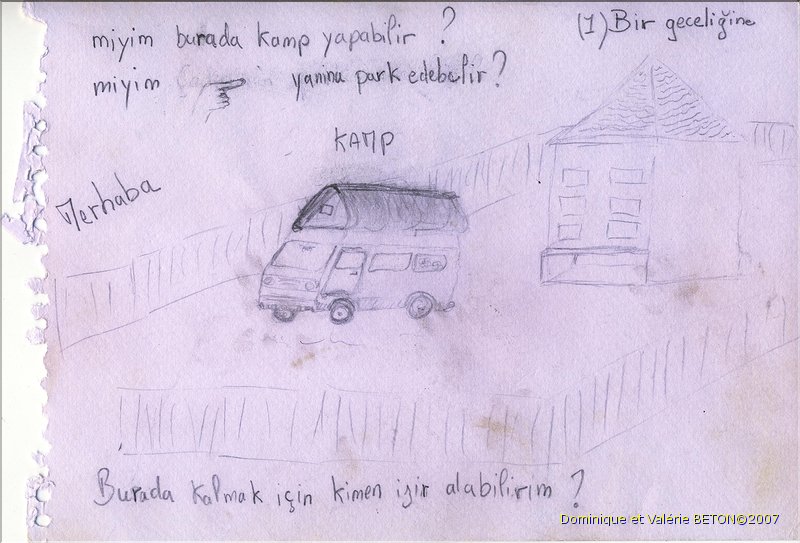 miyim burada kamp yapabilir ?
(1) Bir geceliğine
miyim yanina park edebilir?
KAMP
Merhaba
Burada kalmak için kimen izir alabilirim ?
Dominique et Valérie BETON©2007